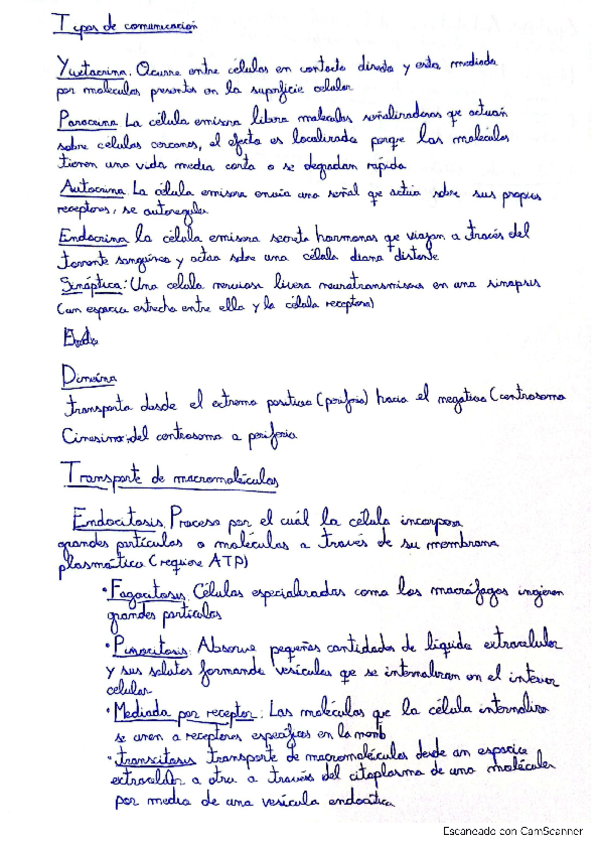 Tipos de comunicación
Yuxtacrina. Ocurre entre células en contacto directo y esta mediada
por moléculas presentes en la superficie celular
Paracrina La célula emisora libera moleculas señalizadoras que actuan
sobre celulas cercanas, el efecto es localizado porque las moléculas
tienen una vida media corta o se degradan rápido
Autocrina La célula emisora envia una señal que actúa sobre sus propios
receptores, se autoregula
Endocrina la célula emisora secreta hormonas que viajan a través del
torrente sanguíneo y actua sobre una célula diana distante
Sináptica: Una celula nerviosa livera neurotransmisores en una sinapsis
(un espacio estrecho entre ella y la célula receptora)
Dineína
transporta desde el extremo positivo (periferia) hacia el negativo (centrosoma
Cinesina: del centrosoma a periferia
Transporte de macromoléculas
Endocitosis. Proceso por el cuál la célula incorpora
grandes partículas o moléculas a través de su membrana
plasmática (requiere ATP)
• Fagocitosis. Células especializadas como los macrófagos ingieren
grandes partículas
• Pinocitosis. Absorve pequeñas cantidades de líquido extracelular
y sus solutos formando vesículas que se internalizan en el interior
celular
• Mediada por receptor: Las moléculas que la célula internaliza
se unen a receptores específicos en la memb
• Transcitosis transporte de macromoléculas desde un espacio
extracelular a otro a través del citoplasma de una molécula
por medio de una vesícula endocítica
Escaneado con CamScanner